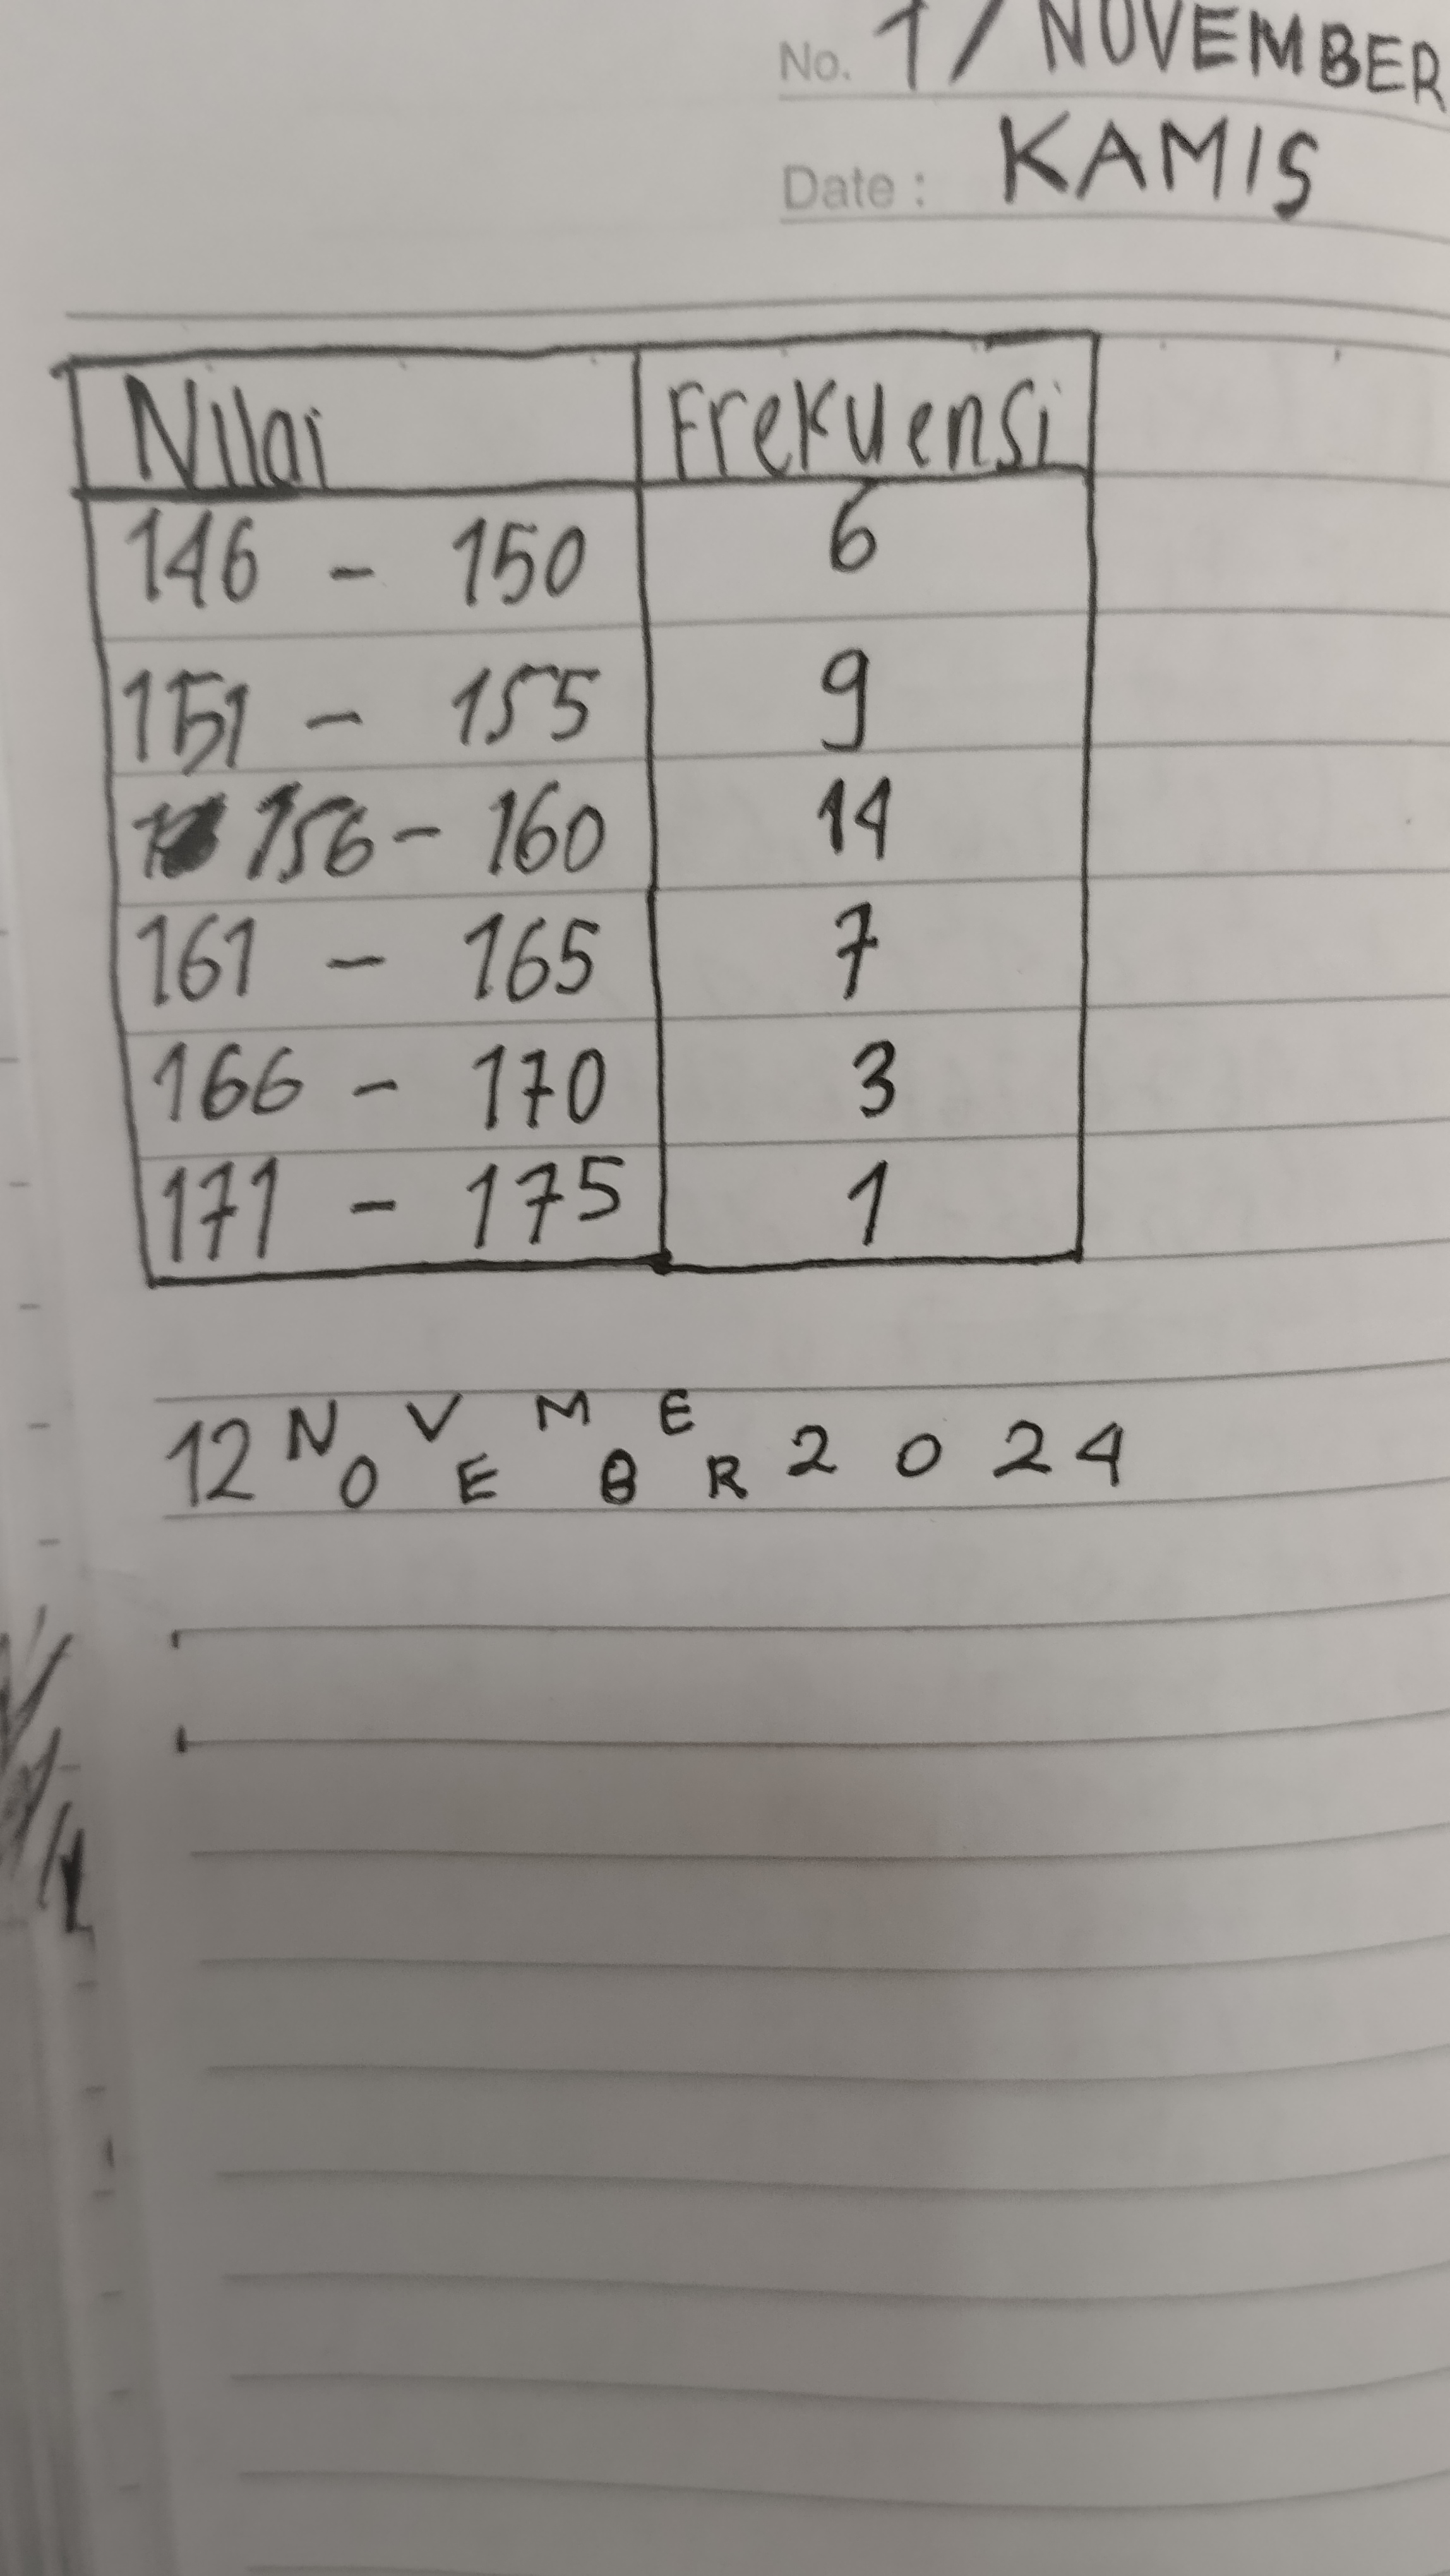 No. 1/ NOVEMBER
Date : KAMIS
Nilai Frekuensi
146 - 150 6
151 - 155 9
156 - 160 14
161 - 165 7
166 - 170 3
171 - 175 1
12 NOVEMBER 2024